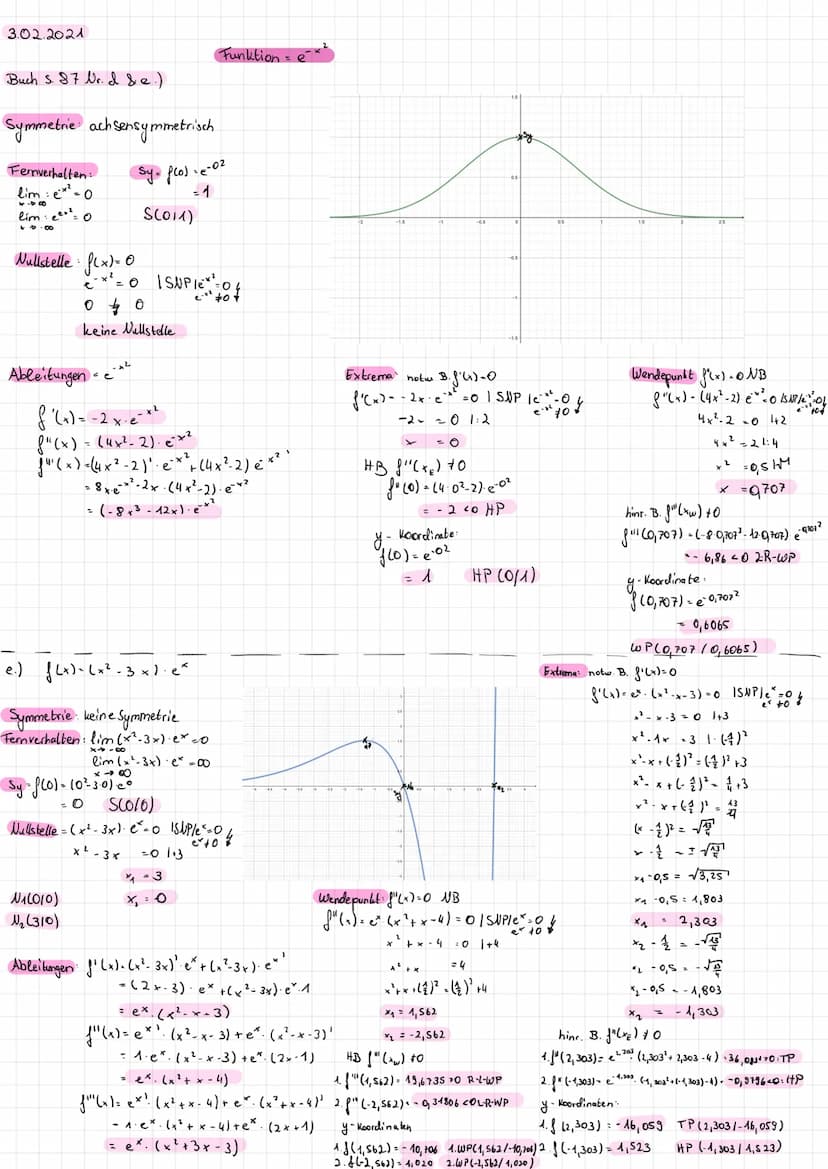 3.02.2021
Funktion = e^-x²
Buch S. 87 Nr. d & e.)
Symmetrie: achsensymmetrisch
Fernverhalten:
lim : e^-x² = 0
x→∞
lim : e^-x² = 0
x→-∞
Sy = f(0) = e^-0²
= 1
S(0|1)
Nullstelle: f(x) = 0
e^-x² = 0 | SNP | e^-x² = 0 ↯
e^-x² ≠ 0
0 ↯ 0
keine Nullstelle
Ableitungen = e^-x²
f'(x) = -2x · e^-x²
f''(x) = (4x²-2) · e^-x²
f'''(x) = (4x²-2)' · e^-x² + (4x²-2) e^-x² '
= 8x·e^-x² -2x · (4x²-2) · e^-x²
= (-8x³ - 12x) · e^-x²
Extrema: notw. B. f'(x) = 0
f'(x) = -2x · e^-x² = 0 | SNP | e^-x² = 0 ↯
e^-x² ≠ 0
-2x = 0 |:2
x = 0
HB f''(x_E) ≠ 0
f''(0) = (4·0²-2) · e^-0²
= -2 < 0 HP
y - Koordinate:
f(0) = e^-0²
= 1 HP (0/1)
Wendepunkt f''(x) = 0 NB
f''(x) = (4x²-2) e^-x² = 0 | SNP | e^-x² = 0 ↯
e^-x² ≠ 0
4x²-2 = 0 |+2
4x² = 2 |:4
x² = 0,5 |√
x = 0,707
hinr. B. f'''(x_W) ≠ 0
f'''(0,707) = (-8·0,707³ - 12·0,707) e^-0,707²
= -6,86 < 0 L-R-WP
y - Koordinate:
f(0,707) = e^-0,707²
= 0,6065
WP(0,707 / 0,6065)
e.) f(x) = (x² - 3x) · e^x
Symmetrie: keine Symmetrie
Fernverhalten: lim (x²-3x) · e^x = 0
x→-∞
lim (x²-3x) · e^x = ∞
x→∞
Sy = f(0) = (0²-3·0) e^0
= 0 S(0/0)
Nullstelle = (x²-3x) · e^x = 0 | SNP | e^x = 0 ↯
e^x ≠ 0
x² - 3x = 0 |+3
x₁ = 3
N₁(0/0) x₁ = 0
N₂(3|0)
Ableitungen: f'(x) = (x²-3x)' · e^x + (x²-3x) · e^x '
= (2x-3) · e^x + (x²-3x) · e^x · 1
= e^x · (x² - x - 3)
f''(x) = e^x ' · (x²-x-3) + e^x · (x²-x-3)'
= 1 · e^x · (x²-x-3) + e^x · (2x-1)
= e^x · (x² + x - 4)
f'''(x) = e^x ' · (x²+x-4) + e^x · (x²+x-4)'
= 1 · e^x · (x²+x-4) + e^x · (2x+1)
= e^x · (x² + 3x - 3)
Wendepunkt: f''(x) = 0 NB
f''(x) = e^x (x²+x-4) = 0 | SNP | e^x = 0 ↯
e^x ≠ 0
x² + x - 4 = 0 |+4
x² + x = 4
x² + x + (1/2)² = (1/2)² + 4
x₁ = 1,562
x₂ = -2,562
HB f'''(x_W) ≠ 0
1. f'''(1,562) = 19,6735 > 0 R-L-WP
2. f'''(-2,562) = -0,31806 < 0 L-R-WP
y-Koordinaten
1. f(1,562) = -10,706 1.WP(1,562/-10,706)
2. f(-2,562) = 1,020 2.WP(-2,562/1,020)
Extrema: notw. B. f'(x) = 0
f'(x) = e^x · (x²-x-3) = 0 | SNP | e^x = 0 ↯
e^x ≠ 0
x² - x - 3 = 0 |+3
x² - 1x = 3 | · (-1/2)²
x² - x + (-1/2)² = (-1/2)² + 3
x² - x + (-1/2)² = 1/4 + 3
x² - x + (-1/2)² = 13/4
(x - 1/2)² = √13/4
x - 1/2 = ±√13/4
x₁ - 0,5 = √3,25
x₁ - 0,5 = 1,803
x₁ = 2,303
x₂ - 1/2 = -√13/4
x₂ - 0,5 = -√13/4
x₂ - 0,5 = -1,803
x₂ = -1,303
hinr. B. f''(x_E) ≠ 0
y-Koordinaten:
1. f(2,303) = -16,059 TP(2,303/-16,059)
2. f(-1,303) = 1,523 HP(-1,303/1,523)